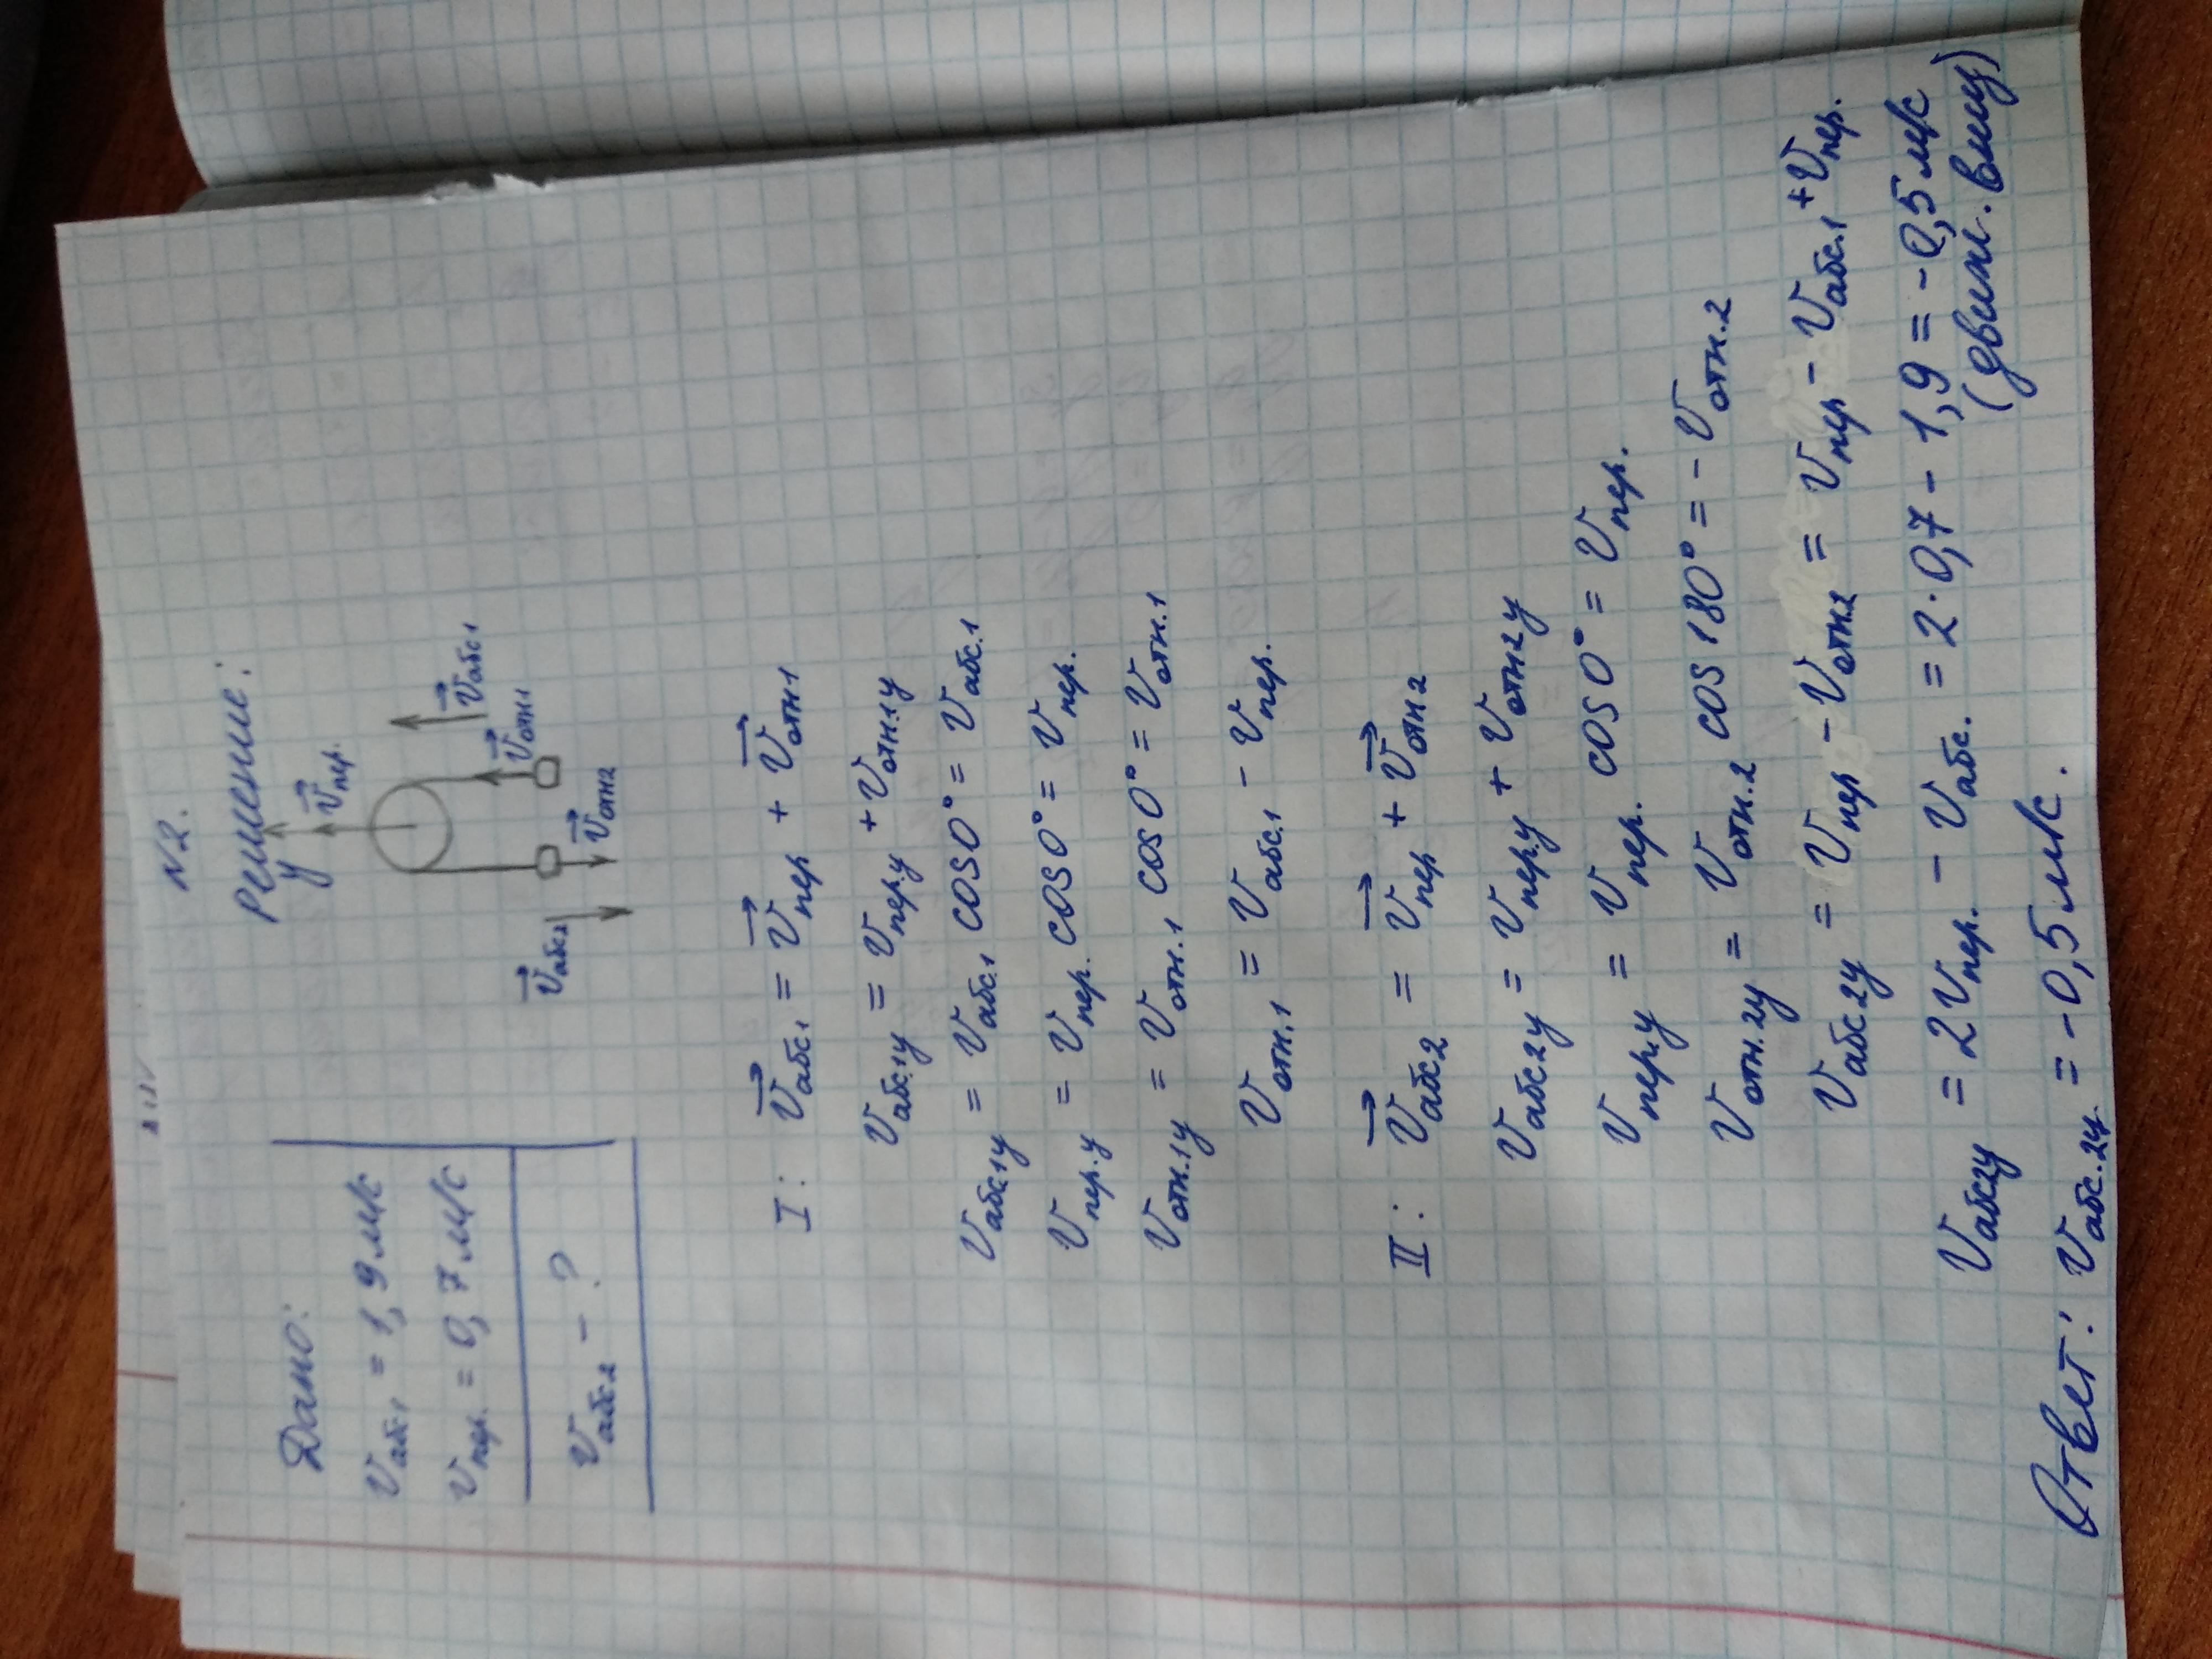 N2.
Дано:
Vабс1 = 1,9 м/с
Vпер. = 0,7 м/с
Vабс.2 - ?
Решение:
y
V⃗пер.
V⃗абс1
V⃗отн1
V⃗абс2
V⃗отн2
I: V⃗абс1 = V⃗пер + V⃗отн1
Vабс.1y = Vпер.y + Vотн.1y
Vабс1y = Vабс.1 cos0° = Vабс.1
Vпер.y = Vпер. cos0° = Vпер.
Vотн.1y = Vотн.1 cos0° = Vотн.1
Vотн.1 = Vабс.1 - Vпер.
II: V⃗абс.2 = V⃗пер + V⃗отн2
Vабс2y = Vпер.y + Vотн2y
Vпер.y = Vпер. cos0° = Vпер.
Vотн.2y = Vотн.2 cos180° = - Vотн.2
Vабс.2y = Vпер - Vотн.2 = Vпер - Vабс.1 + Vпер.
Vабс2y = 2Vпер. - Vабс. = 2·0,7 - 1,9 = -0,5 м/с
(движ. вниз)
Ответ: Vабс.2y = -0,5 м/с.